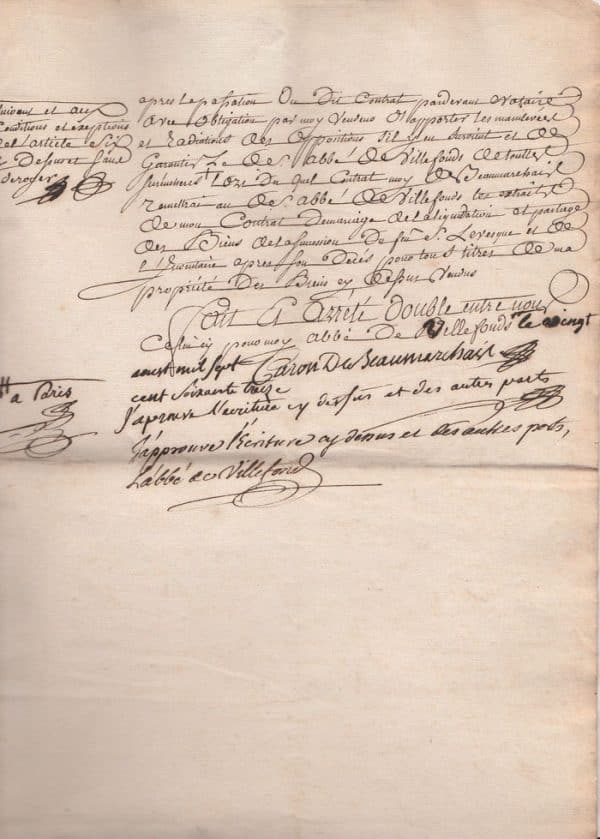 suivant et aux
Conditions et exceptions
de l'article Six
Dessus et sans
deroger
apres la passation Du Dit Contrat pardevant Notaire
avec obligation par moy Vendeur D'apporter les mainlevées
et Radiations des Oppositions s'il en Survient et de
Garantir Le de S. abbé de Villefonds de toutes
Lors Du quel Contrat moy de Beaumarchais
remettrai au de S. abbé de Villefonds les extraits
de mon Contrat Demariage de la liquidation et partage
des Biens de la succession De feu S. Levesque et de
l'Inventaire apres son Décés pour tous titres de ma
propriété Des Biens cy dessus Vendus
fait et Arreté double entre nous
a Paris
Ce pour moy abbé De Villefonds le vingt
aoust mil sept
cent soixante treize
Caron De Beaumarchais
J'aprouve l'écriture cy dessus et des autres parts
J'approuve l'Ecriture cy dessus et des autres parts,
L'abbé de Villefond